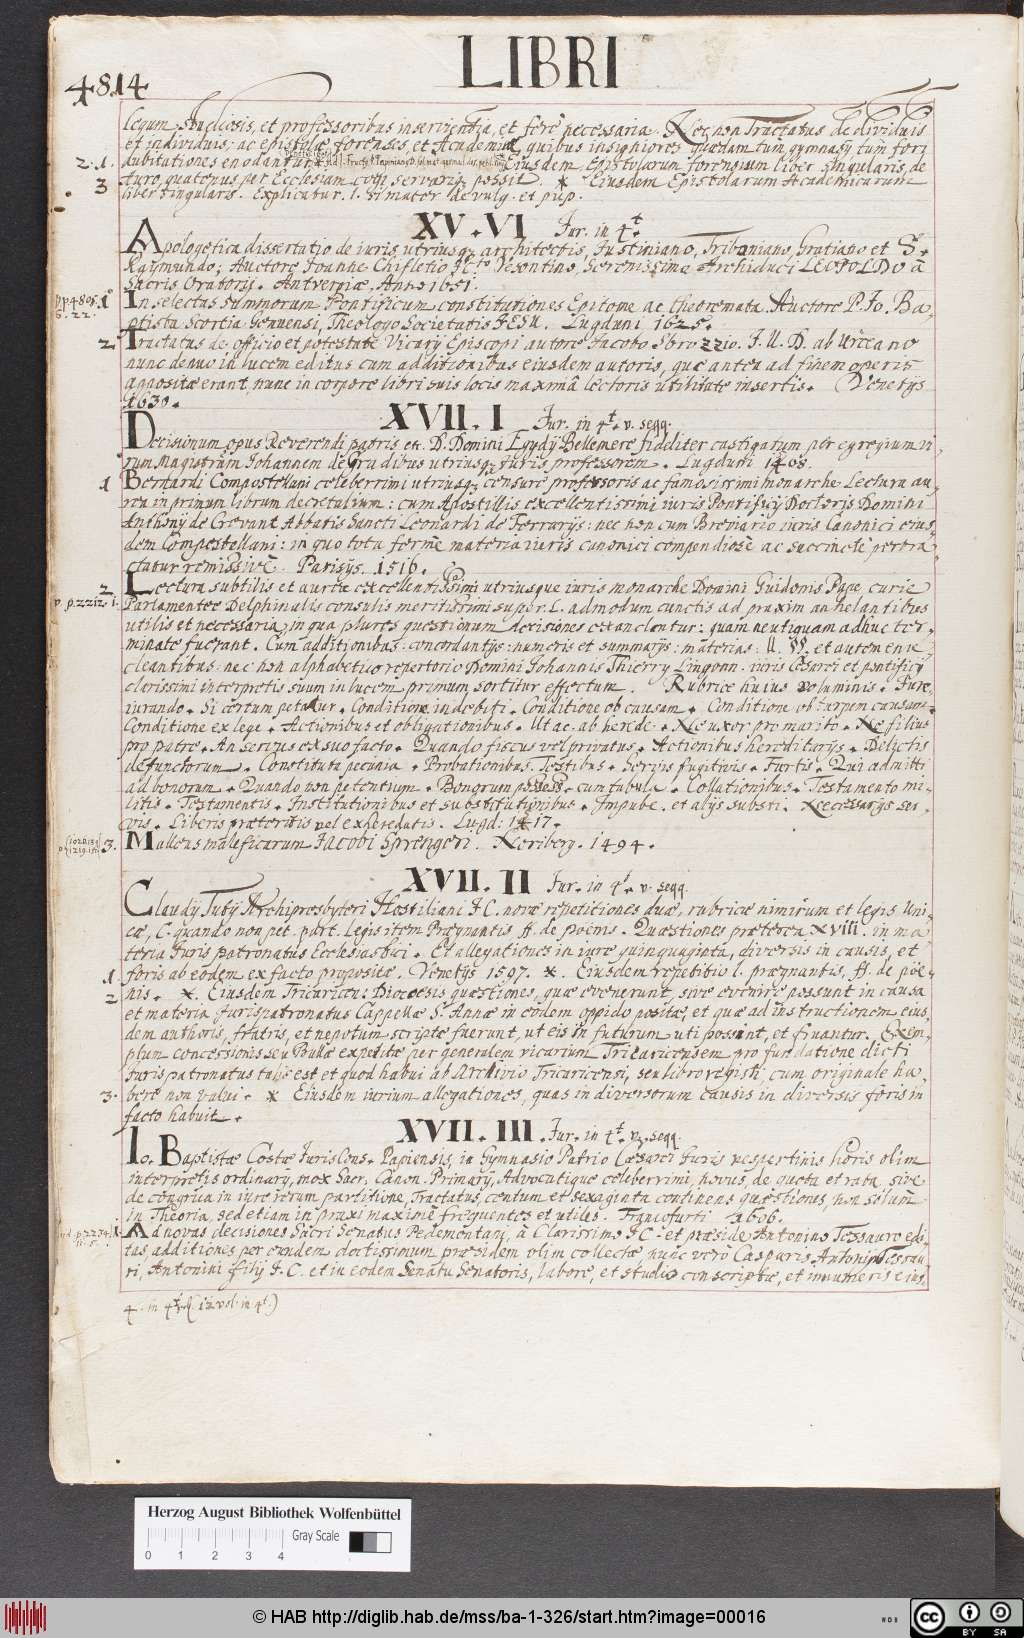 LIBRI
4814
legum studiosis, et professoribus inservientia, et fere necessaria. Nec non Tractatus de dividuis
et individuis; ac epistolae forenses, et Academicae, quibus insigniores quaedam tum gymnasy tum fori
2. 1. dubitationes enodantur. Eiusdem Epistolarum forensium liber singularis, de
3 iuro, quatenus per Ecclesiam possit. * Eiusdem Epistolarum Academicarum
liber singularis. Explicatur. l. Si mater de vulg. et pup.
XV. VI Jur. in 4t.
Apologetica dissertatio de iuris utriusq3 architectis, Justiniano, Triboniano, Gratiano et S.
Raymundo; Auctore Joanne Chifletio JC.to Vesontino, Serenissimo Archiduci LEOPOLDO à
sacris Oratorijs. Antverpiae, Anno 1651.
p. 4805. 1° In selectas Summorum Pontificum constitutiones Epitome ac theoremata Auctore P. Jo. Ba-
6. 22. ptista Scortia Genuensi, Theologo Societatis JESU. Lugduni 1625.
2 Tractatus de officio et potestate Vicarij Episcopi autore Jacobo Sbrozzio. J. U. D. ab Urceano
nunc denuo in lucem editus cum additionibus eiusdem autoris, quae antea ad finem operis
appositae erant, nunc in corpore libri suis locis maxima lectoris utilitate insertis. Venetijs
1630.
XVII. I Jur. in 4t. v. seqq.
Decisionum opus Reverendi patris etc. D. Domini Egydij Bellemere fideliter castigatum per egregium vi-
rum Magistrum Johannem de Gradibus utriusq3 iuris professorem. Lugduni 1508.
1 Bernardi Compostellani celeberrimi utriusq3 censure professoris ac famosissimi monarche Lectura au-
rea in primum librum decretalium: cum Apostillis excellentissimi iuris Pontificij Doctoris Domini
Anthonij de Crevant Abbatis Sancti Leonardi de Ferrarijs: nec non cum Breviario iuris Canonici eius-
dem Compostellani: in quo tota ferme materia iuris canonici compendiose ac succincte perora-
ctatur remissive. Parisijs. 1516.
2 Lectura subtilis et aurea excellentissimi utriusque iuris monarche Domini Guidonis Pape curie
v. p. 2212. 1. Parlamentee Delphinalis consulis meritissimi super. L. admodum cunctis ad praxim anhelantibus
utilis et necessaria, in qua plures questionum decisiones exanclantur: quam neutiquam adhuc ter-
minate fuerant. Cum additionibus: concordantijs: numeris et summarijs: materias: ll. §§. et autem enu-
cleantibus: nec non alphabetico repertorio Domini Johannis Thierry Lingonn. iuris Cesarei et pontificij
clarissimi interpretis suum in lucem primum sortitur effectum. Rubrice huius voluminis. Jure
iurando. Si certum petatur. Conditione indebiti. Conditione ob causam. Conditione ob turpem causam.
Conditione ex lege. Actionibus et obligationibus. Ut ac. ab herede. Ne uxor pro marito. Ne filius
pro patre. An servus ex suo facto. Quando fiscus vel privatus. Actionibus hereditarijs. Delictis
defunctorum. Constituta pecunia. Probationibus. Testibus. Servis fugitivis. Furtis. Qui admitti
ad bonorum. Quando non petentium. Bonorum possess. cum tubula. Collationibus. Testamento mi-
litis. Testamentis. Institutionibus et substitutionibus. Impube. et alijs substi. Necessarijs ser-
vis. Liberis praeteritis vel exheredatis. Lugd: 1517.
3. Malleus maleficarum JACobi Sprengeri. Neriberg. 1494.
XVII. II Jur. in 4t. v. seqq.
Claudij Tutij Archipresbyteri Hostiliani JC. novae repetitiones duae, rubricae nimirum et legis Uni-
cae, C. quando non pet. part. Legis item Praegnantis ff. de poenis. Quaestiones praeterea XVIII. in ma-
teria Juris patronatus Ecclesiastici. Et allegationes in iure quinquaginta, diversis in causis, et
1 foris ab eodem ex facto propositae. Venetijs 1597. *. Eiusdem repetitio l. praegnantis, ff. de poe-
2 nis. *. Eiusdem Tricaricen: Dioecesis quaestiones, quae evenerunt, sive evenire possunt in causa
et materia Jurispatronatus Cappellae S. Annae in eodem oppido positae, et quae ad instructionem eius-
dem authoris, fratris, et nepotum scriptae fuerunt, ut eis in futurum uti possint, et fruantur. Exem-
plum concessionis seu Bullae expeditae per generalem vicarium Tricaricensem pro fundatione dicti
Jurispatronatus tale est et quod habui ab Archivio Tricaricensi, seu libro registi, cum originale ha-
3. bere non valui. * Eiusdem iurium allegationes, quas in diversorum causis in diversis foris in
facto habuit.
XVII. III. Jur. in 4t. v. seqq.
Io. Baptistae Costae JurisCons. Papiensis, in Gymnasio Patrio Caesarei Juris vespertinis horis olim
interpretis ordinarij, mox Sacr. Canon. Primarij, Advocatique celeberrimi, novus, de quota et rata, sive
de congrua in iure rerum partitione, Tractatus, centum et sexaginta continens quaestiones, non solum
in Theoria, sed etiam in praxi maxime frequentes et utiles. Francofurti 1606.
1. Ad novas decisiones Sacri Senatus Pedemontani, à Clarissimo JC. et praeside Antonino Tessauro edi-
tas additiones per eundem doctissimum praesidem olim collectae nunc vero Casparis Antonij Tessau-
ri, Antonini filij J.C. et in eodem Senatu Senatoris, labore, et studio conscriptae, et innumeris eius-
4. in 4t. (12 vol. in 4t.)
Herzog August Bibliothek Wolfenbüttel
Gray Scale
0 1 2 3 4
© HAB http://diglib.hab.de/mss/ba-1-326/start.htm?image=00016
WDB
cc BY SA